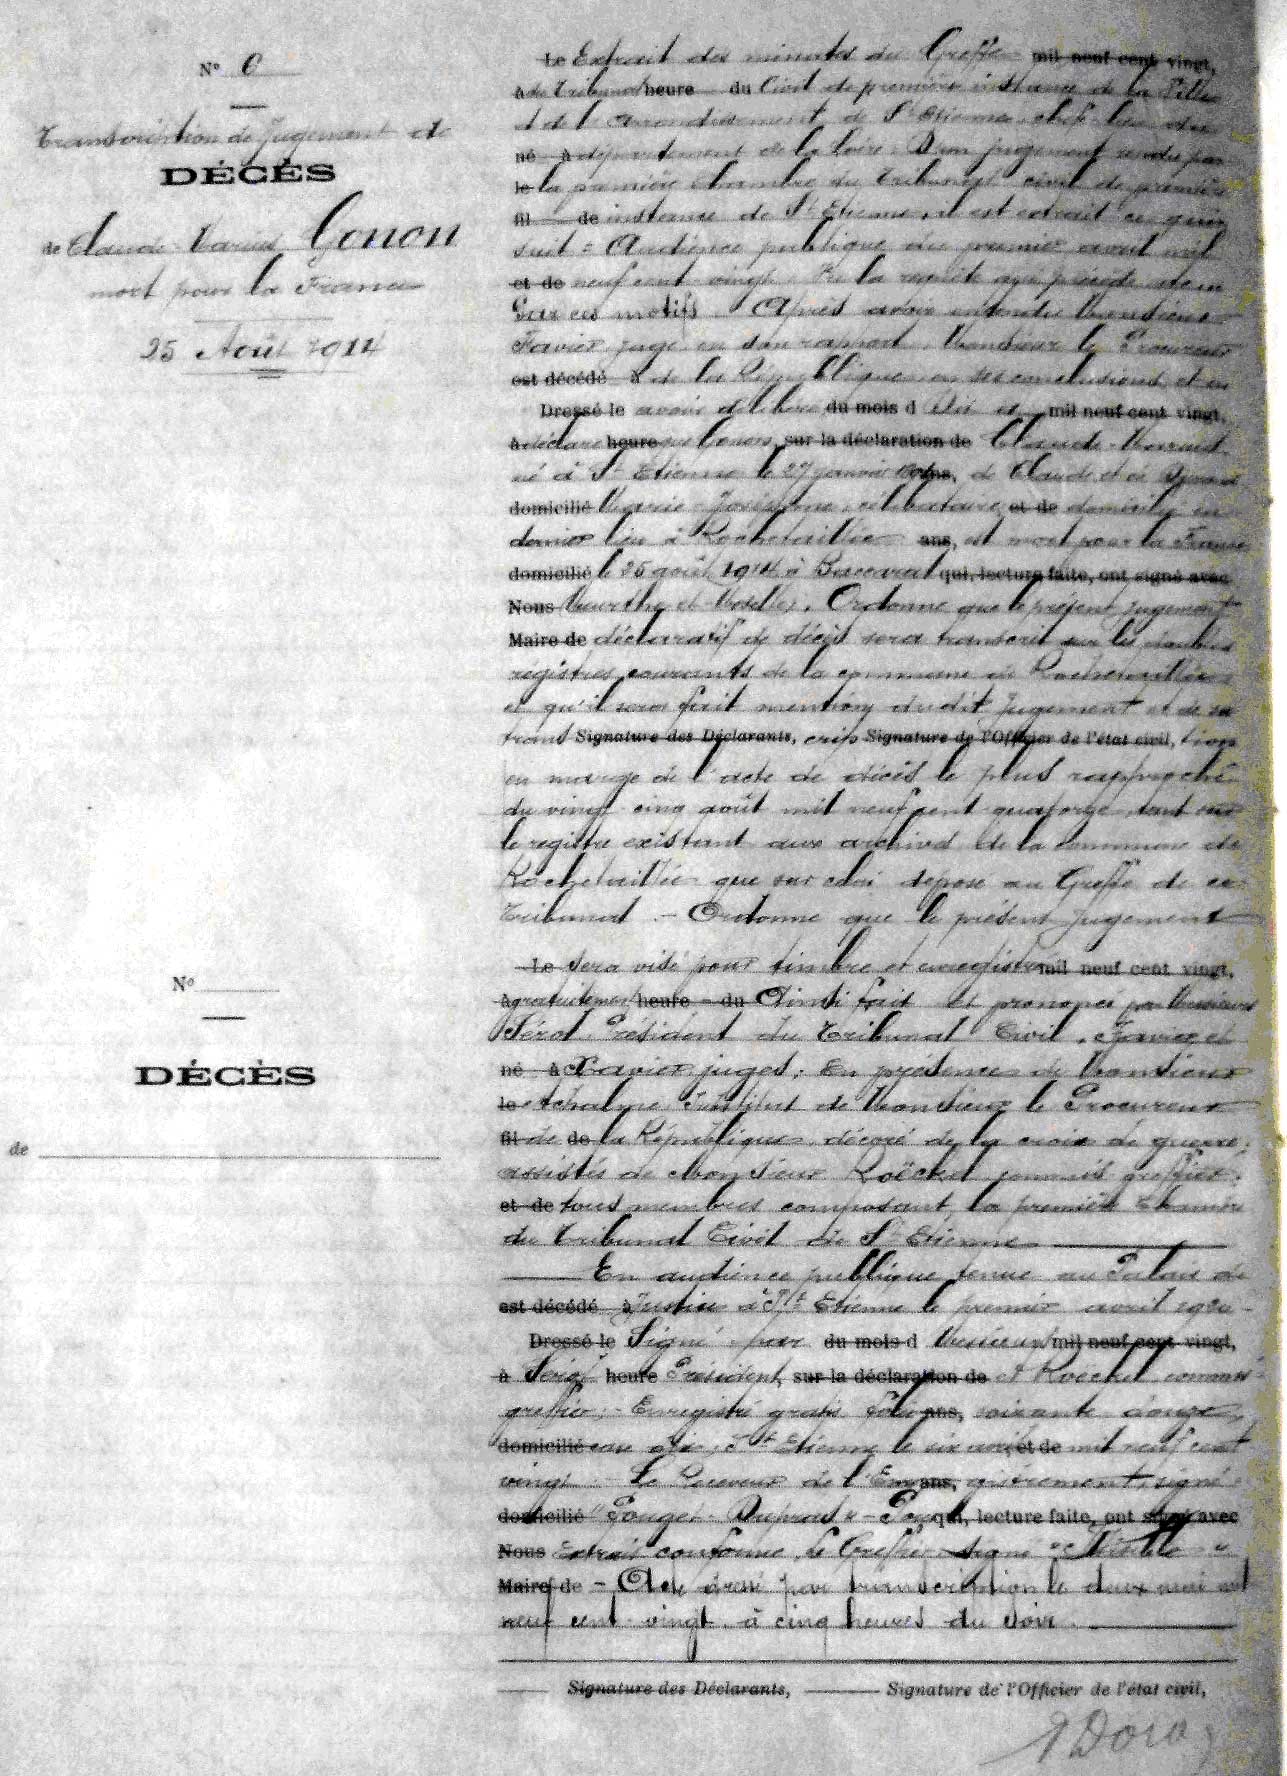 N° 6
Transcription de Jugement de
DÉCÈS
de Claude Marius Gonon
mort pour la France
25 Août 1914
Le Extrait des minutes du Greffe mil neuf cent vingt,
à du Tribunal heure du Civil de première instance de la Ville
et de l'arrondissement de St Etienne chef-lieu du
né à département de la Loire. D'un jugement rendu par
le la première Chambre du Tribunal civil de première
fil de instance de St Etienne, il est extrait ce qui
suit = Audience publique du premier avril mil
et de neuf cent vingt. De la requête qui précède
Par ces motifs Après avoir entendu Monsieur
Favier juge en son rapport, Monsieur le Procureur
est décédé à de la République en ses conclusions et en
Dressé le avoir délibéré du mois d Dit et mil neuf cent vingt,
à déclare heure que Gonon sur la déclaration de Claude Marius
né à St Etienne le 27 janvier ans, de Claude et de
domicilié Marie Joséphine, célibataire, et de domicilié en
dernier lieu à Rochetaillée ans, est mort pour la France
domicilié le 25 août 1914 à Baccarat qui, lecture faite, ont signé avec
Nous Meurthe et Moselle). Ordonne que le présent jugement
Maire de déclaratif de décès sera transcrit sur les doubles
registres courants de la commune de Rochetaillée
et qu'il sera fait mention dudit Jugement et de sa
trans Signature des Déclarants, crip Signature de l'Officier de l'état civil, tion
en marge de l'acte de décès le plus rapproché
du vingt cinq août mil neuf cent quatorze tant sur
le registre existant aux archives de la commune de
Rochetaillée que sur celui déposé au Greffe de ce
Tribunal. - Ordonne que le présent Jugement
N°
DÉCÈS
de
Le sera visé pour timbre et enregistré mil neuf cent vingt,
à gratuitement heure du Ainsi fait et prononcé par Messieurs
Président du Tribunal Civil, Favier et
né à juges; En présence de Monsieur
le substitut de Monsieur le Procureur
fil de de la République, décoré de la croix de guerre,
assistés de Monsieur Roëckel commis greffier,
et de tous membres composant la première Chambre
du Tribunal Civil de St Etienne
En audience publique tenue au Palais de
est décédé à Justice à St Etienne le premier avril 1920
Dressé le Signé par du mois d Messieurs mil neuf cent vingt,
à heure Président, sur la déclaration de et Roeckel commis
greffier; - Enregistré gratis folio ans, soixante douze,
domicilié case dix, St Etienne le six avril et de mil neuf cent
vingt - Le Receveur de l'En ans, gistrement, signé
domicilié "Pouget Duprat" - Pour qui, lecture faite, ont signé avec
Nous Extrait conforme, le Greffier signé
Maire de - Acte dressé par transcription le deux mai mil
neuf cent vingt à cinq heures du soir
Signature des Déclarants, Signature de l'Officier de l'état civil,